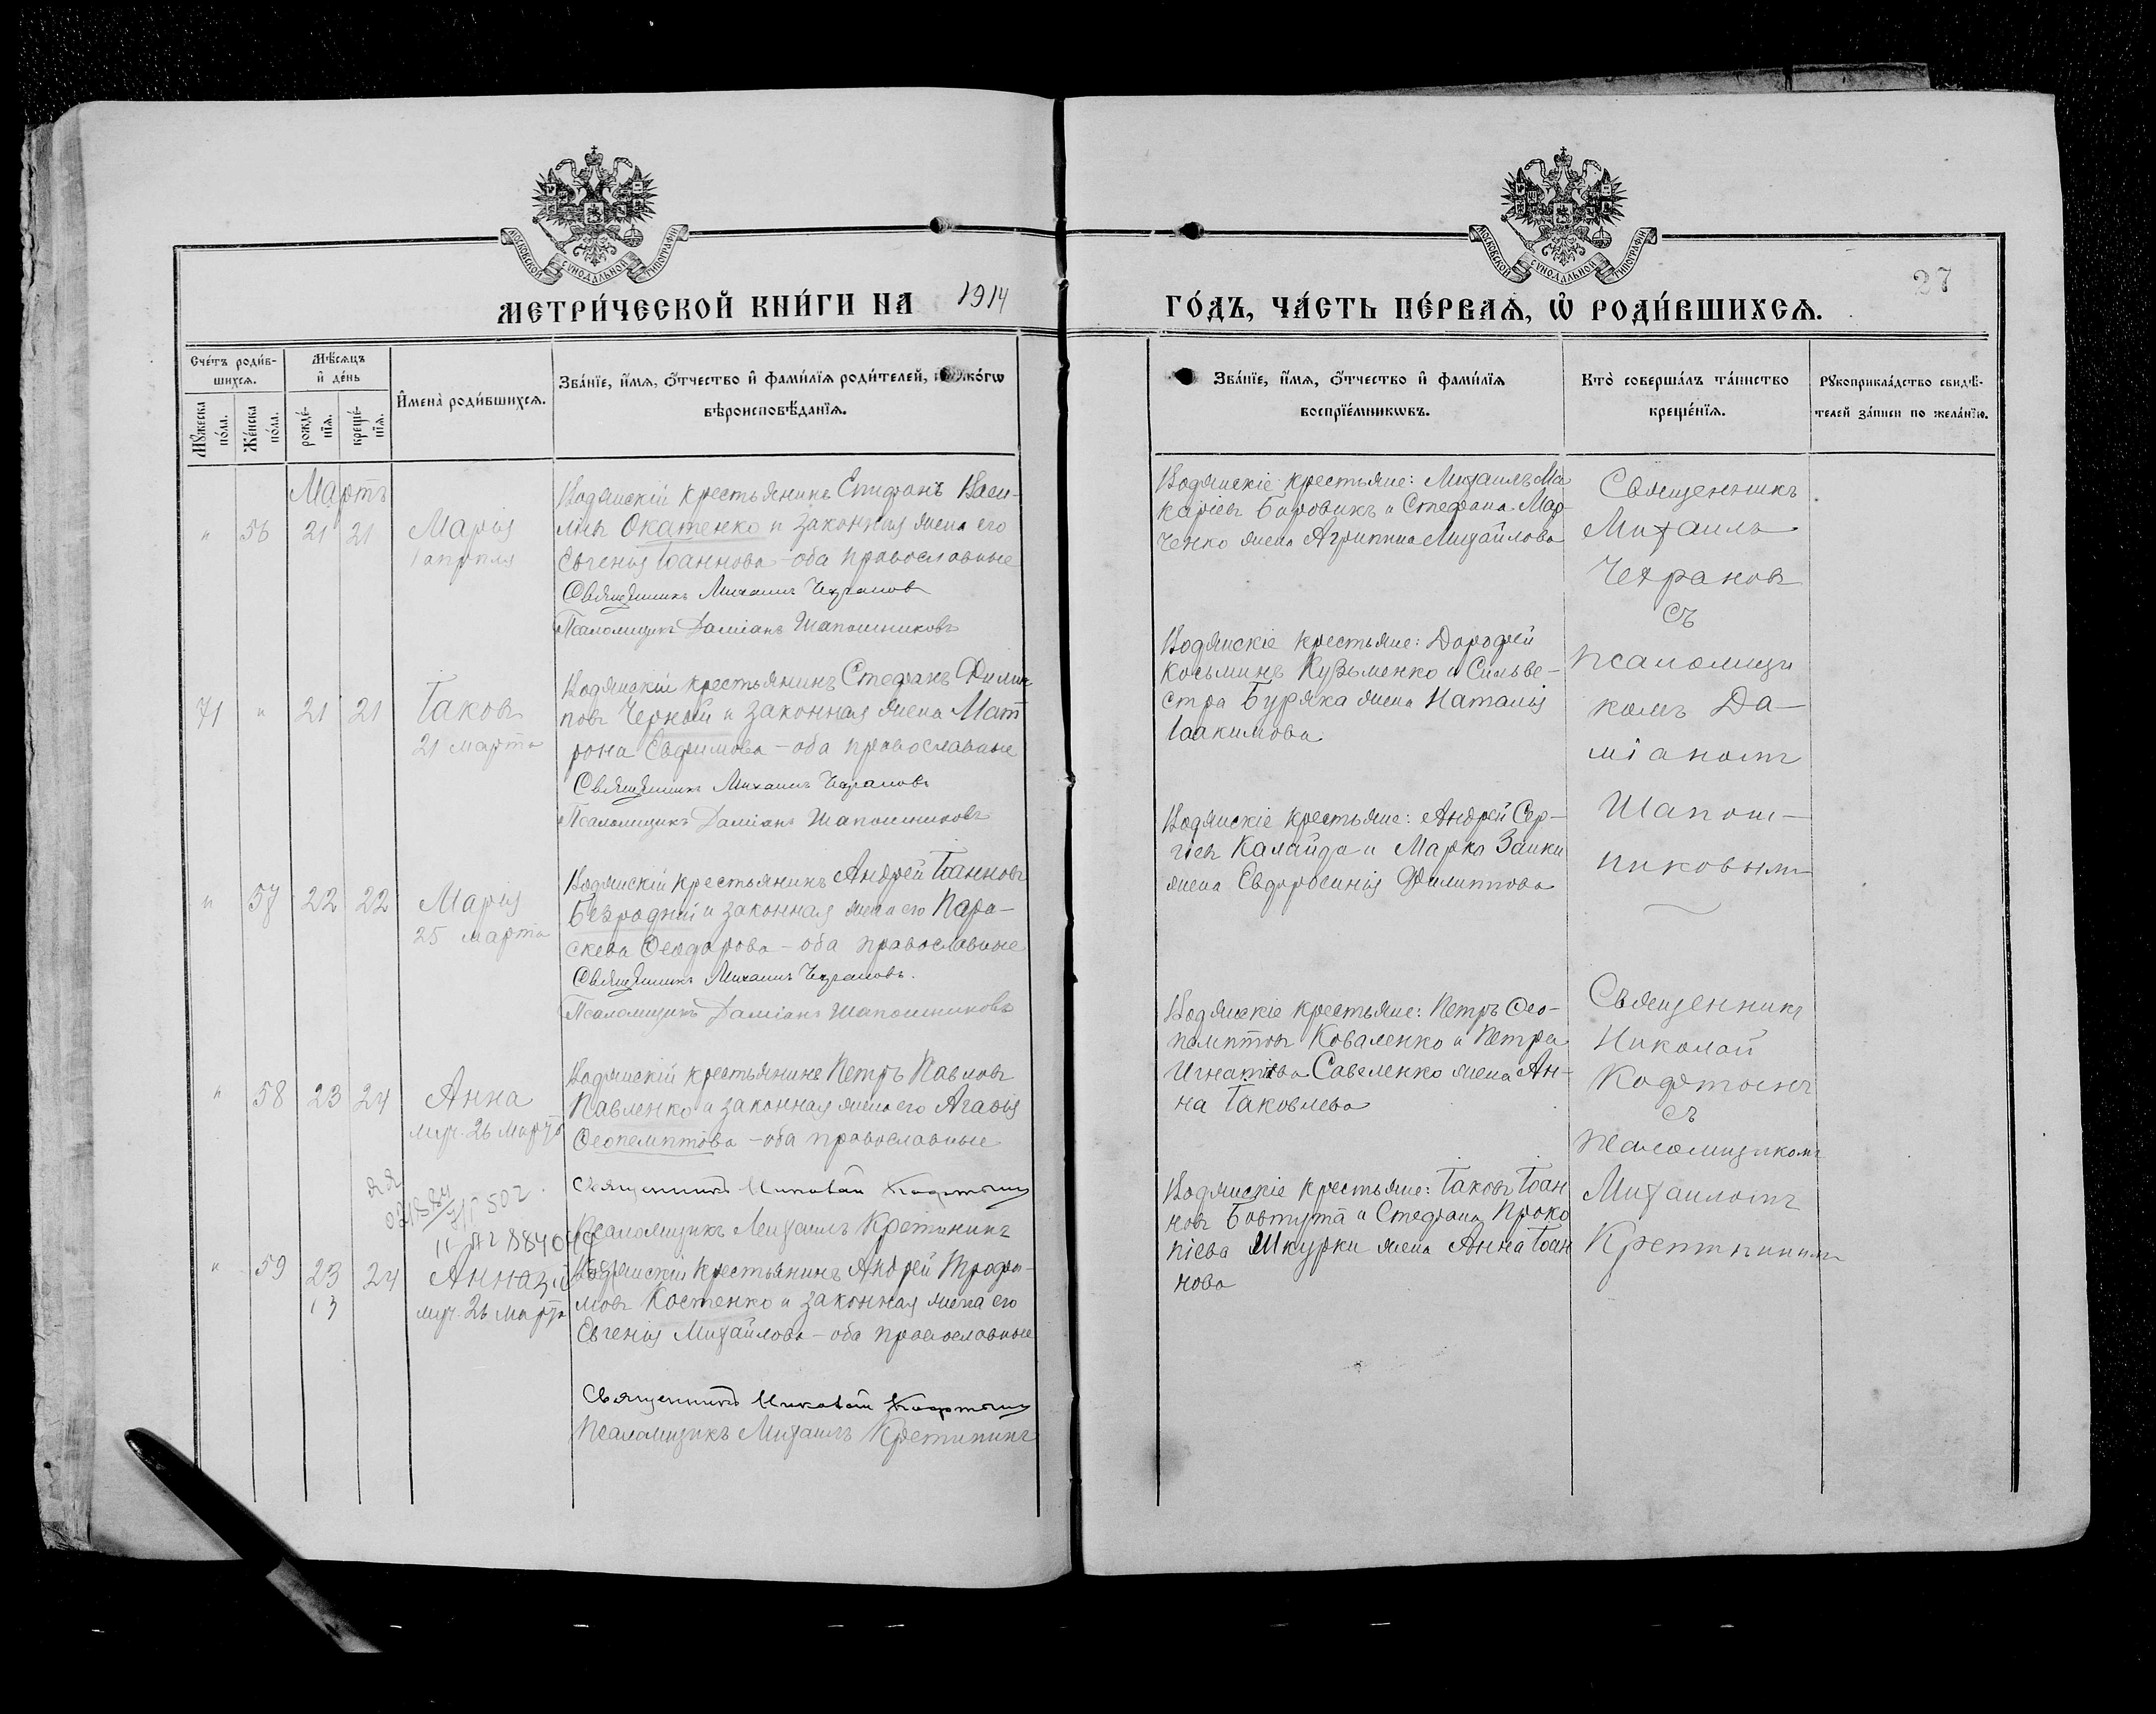 МОСКОВСКОЙ СѴНОДАЛЬНОЙ ТИПОГРАФІИ
МОСКОВСКОЙ СѴНОДАЛЬНОЙ ТИПОГРАФІИ
27
МЕТРИ́ЧЕСКОЙ КНИ́ГИ НА 1914
ГО́ДЪ, ЧА́СТЬ ПЕ́РВАЯ, Ѽ РОДИ́ВШИХСЯ.
Сче́тъ роди́в-
шихся.
Мѣ́сяцъ
и҆ де́нь
Мꙋ́жеска по́ла.
Же́нска по́ла.
рожде́-
нїя.
креще́-
нїя.
И҆мена̀ роди́вшихся.
Зва́нїе, и҆́мя, ѻ҆́тчество и҆ фами́лїя роди́телей, и҆
вѣроисповѣ́данїя.
Зва́нїе, и҆́мя, ѻ҆́тчество и҆ фами́лїя
воспрїе́мникѡвъ.
Кто̀ соверша́лъ та́инство
креще́нїя.
Рꙋкоприкла́дство свидѣ́-
телей за́писи по жела́нїю.
Мартъ
" 56 21 21
Марія
1 апрѣля
Водянскій крестьянинъ Стефанъ Васи-
льевъ Окатенко и законная жена его
Евгенія Іоаннова - оба православные
Священникъ Михаилъ Чехрановъ
Псаломщикъ Даміанъ Шапошниковъ
Водянскіе крестьяне: Михаилъ Ма
каріевъ Боровикъ и Стефана Мар-
ченко жена Агриппина Михайлова
Священникъ
Михаилъ
Чехрановъ
съ
псаломщи
комъ Да-
міаномъ
Шапош-
никовымъ
71 " 21 21
Іаковъ
21 марта
Водянскій крестьянинъ Стефанъ Филип
повъ Черной и законная жена Мат
рона Евфимова - оба православные
Священникъ Михаилъ Чехрановъ
Псаломщикъ Даміанъ Шапошниковъ
Водянскіе крестьяне: Дорофей
Косьминъ Кузьменко и Сильве-
стра Буряка жена Наталія
Іоакимова
" 57 22 22
Марія
25 марта
Водянскій крестьянинъ Андрей Іоанновъ
Безродний и законная жена его Пара-
скева Ѳеодорова - оба православные
Священникъ Михаилъ Чехрановъ.
Псаломщикъ Даміанъ Шапошниковъ
Водянскіе крестьяне: Андрей Сер-
гіевъ Калайда и Марка Заики
жена Евфросинія Филиппова
" 58 23 24
Анна
муч. 26 марта
Водянскій крестьянинъ Петръ Павловъ
Павленко и законная жена его Агафія
Ѳеопемптова - оба православные
Священникъ Николай Кафтынъ
Псаломщикъ Михаилъ Кретининъ
Водянскіе крестьяне: Петръ Ѳео-
пемптовъ Коваленко и Петра
Игнатіева Савеленко жена Ан-
на Іаковлева
Священникъ
Николай
съ
псаломщикомъ
Михаиломъ
Кретининымъ
" 59 23 24
13
Анна
муч. 26 марта
Водянскій крестьянинъ Андрей Трофи-
мовъ Костенко и законная жена его
Евгенія Михайлова - оба православные
Священникъ Николай Кафтынъ
Псаломщикъ Михаилъ Кретининъ
Водянскіе крестьяне: Іаковъ Іоан
новъ Бовтута и Стефана Проко
піева Шкурки жена Анна Іоан
нова